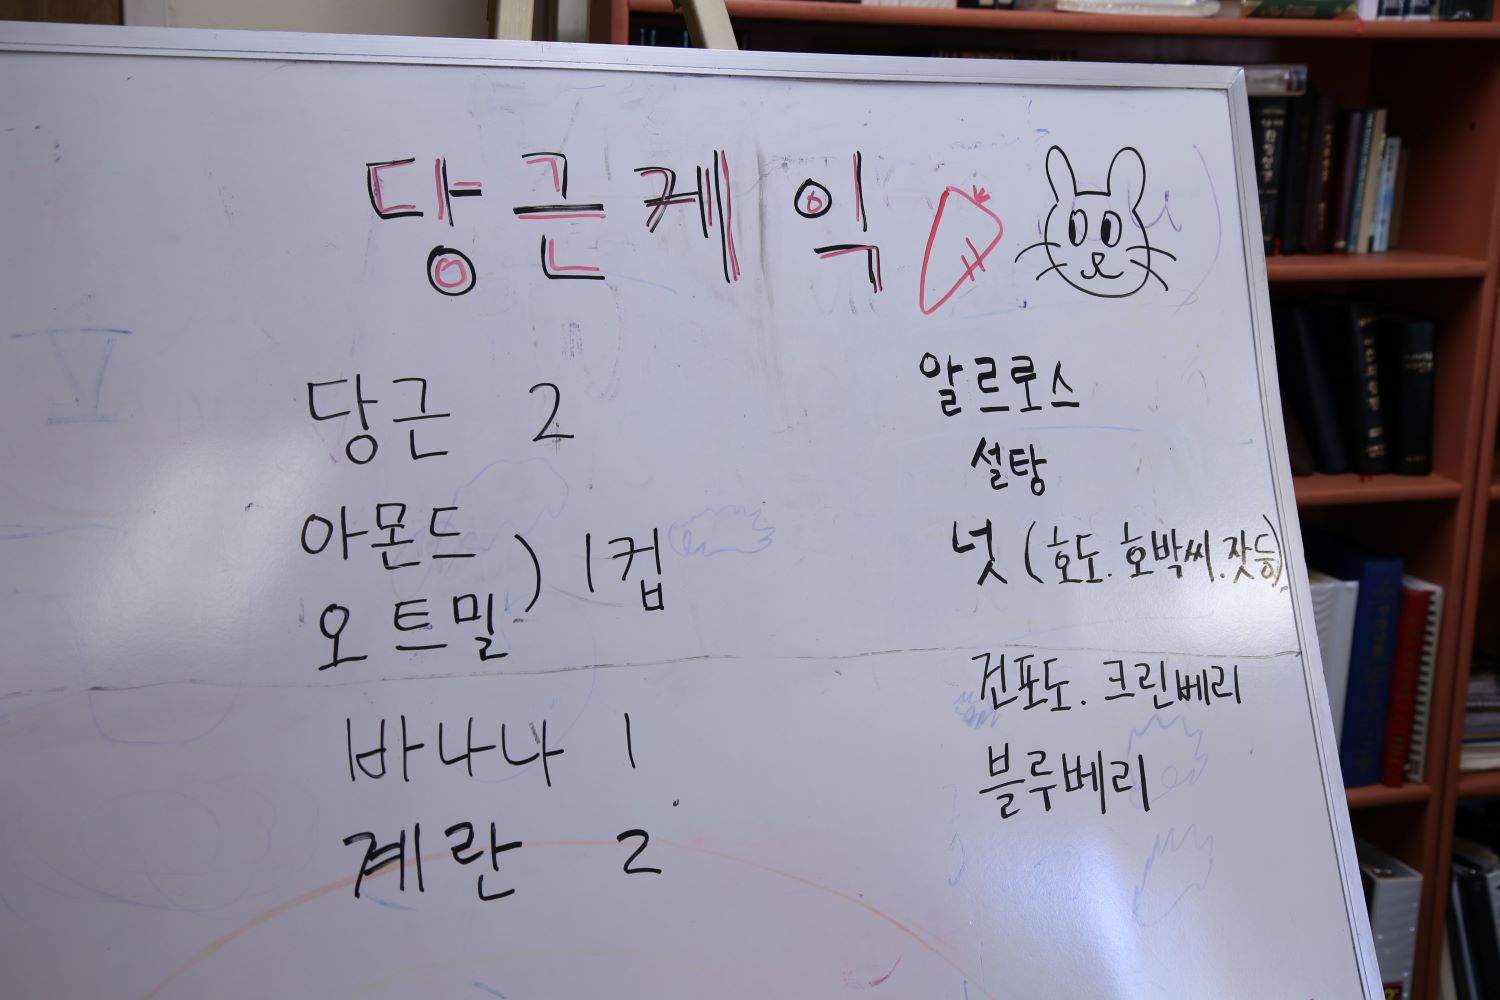 당근케익
당근 2
아몬드
오트밀 ) 1컵
바나나 1
계란 2
알르로스
설탕
넛 (호도. 호박씨.잣등)
건포도. 크린베리
블루베리